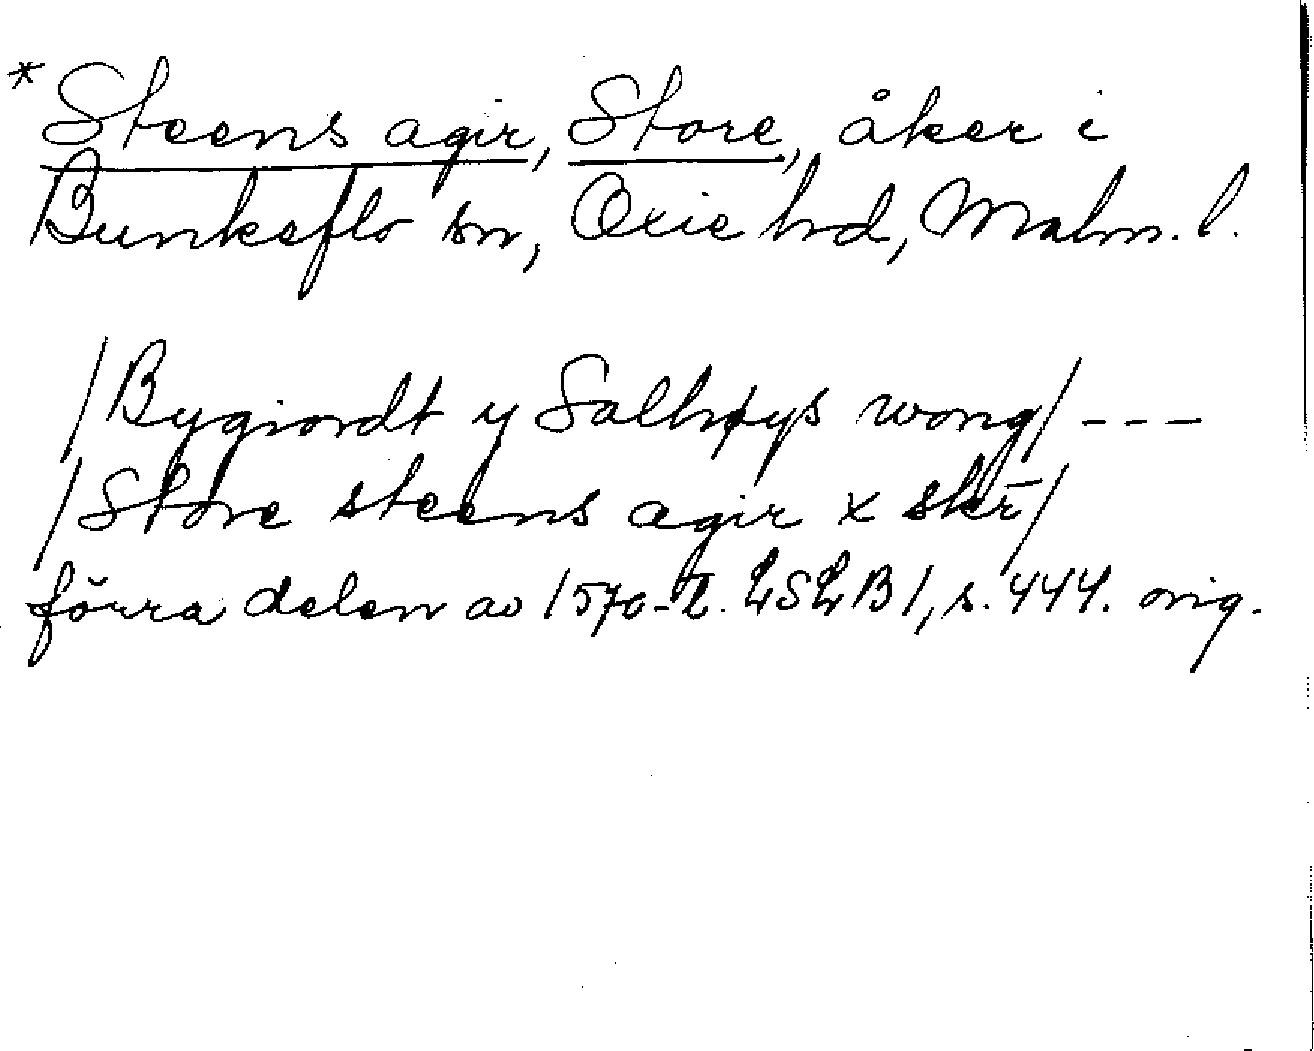 * Steens agir, Store, åker i
Bunkeflo sn, Oxie hd, Malm. l.
/Bygiordt y Salhøys wong/ ---
/Store steens agir x skr̄/
förra delen av 1570-t. LSLB1, s. 444. orig.